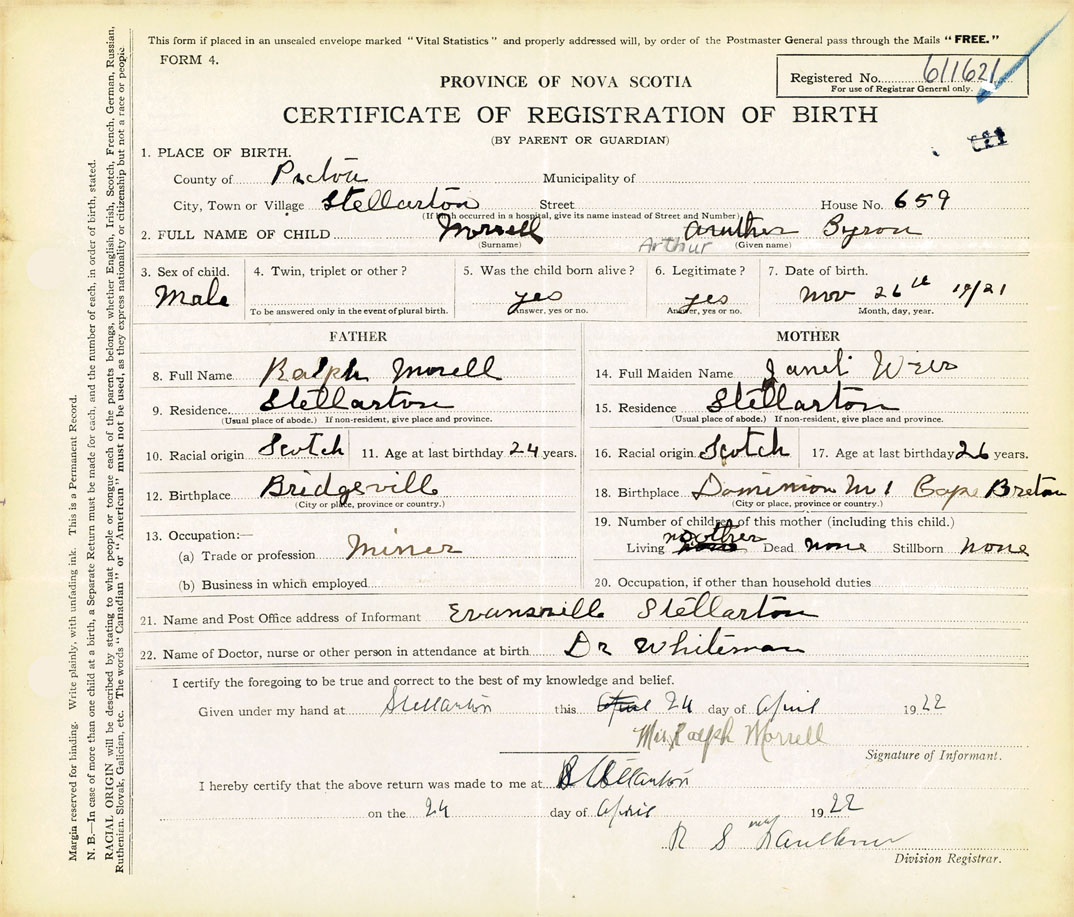 This form if placed in an unsealed envelope marked "Vital Statistics" and properly addressed will, by order of the Postmaster General pass through the Mails "FREE."
FORM 4.
Registered No. 611621
For use of Registrar General only.
PROVINCE OF NOVA SCOTIA
CERTIFICATE OF REGISTRATION OF BIRTH
(BY PARENT OR GUARDIAN)
1. PLACE OF BIRTH.
County of Pictou Municipality of
City, Town or Village Stellarton Street House No. 659
(If birth occurred in a hospital, give its name instead of Street and Number)
2. FULL NAME OF CHILD Morrell Aruther Byron
(Surname) Arthur (Given name)
3. Sex of child. 4. Twin, triplet or other? 5. Was the child born alive? 6. Legitimate? 7. Date of birth.
Male yes yes Nov 26th 19/21
To be answered only in the event of plural birth. Answer, yes or no. Answer, yes or no. Month, day, year.
FATHER MOTHER
8. Full Name Ralph Morell 14. Full Maiden Name Janet Weir
9. Residence. Stellarton 15. Residence Stellarton
(Usual place of abode.) If non-resident, give place and province. (Usual place of abode.) If non-resident, give place and province.
10. Racial origin Scotch 11. Age at last birthday 24 years. 16. Racial origin Scotch 17. Age at last birthday 26 years.
12. Birthplace Bridgeville 18. Birthplace Dominion No 1 Cape Breton
(City or place, province or country.) (City or place, province or country.)
13. Occupation:— 19. Number of children of this mother (including this child.)
(a) Trade or profession Miner Living no other Dead none Stillborn none
(b) Business in which employed 20. Occupation, if other than household duties
21. Name and Post Office address of Informant Evansville Stellarton
22. Name of Doctor, nurse or other person in attendance at birth Dr Whiteman
I certify the foregoing to be true and correct to the best of my knowledge and belief.
Given under my hand at Stellarton this 24 day of April 1922
Mrs Ralph Morrell
Signature of Informant.
I hereby certify that the above return was made to me at Stellarton
on the 24 day of April 1922
R S Faulkner
Division Registrar.
Margin reserved for binding. Write plainly, with unfading ink. This is a Permanent Record.
N. B.—In case of more than one child at a birth, a Separate Return must be made for each, and the number of each, in order of birth, stated.
RACIAL ORIGIN will be described by stating to what people or tongue each of the parents belongs, whether English, Irish, Scotch, French, German, Russian,
Ruthenian, Slovak, Galician, etc. The words "Canadian" or "American" must not be used, as they express nationality or citizenship but not a race or people